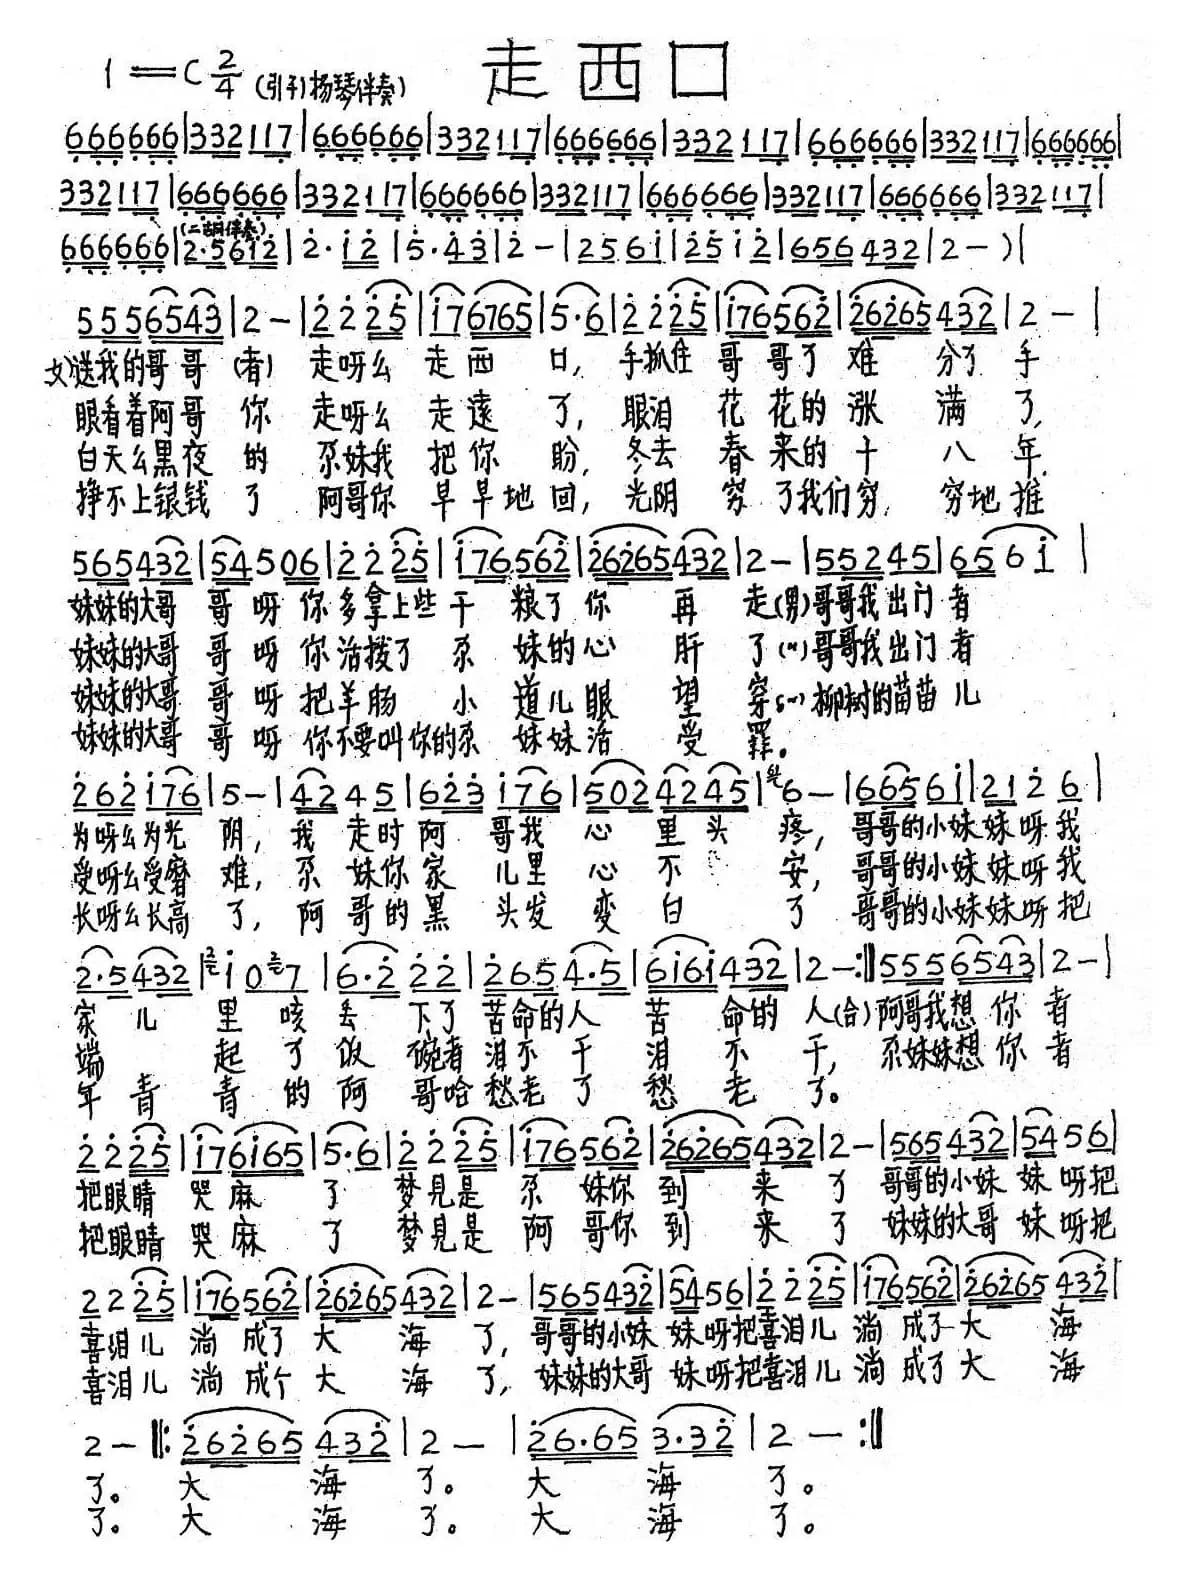 走西口
1=C 2/4 (引子)扬琴伴奏)
666666|332117|666666|332117|666666|332117|666666|332117|666666|
332117|666666|332117|666666|332117|666666|332117|666666|332117|
(二胡伴奏)
666666|2·5612|2·12|5·43|2-|2561|2512|656432|2-)|
5556543|2-|2225|176765|5·6|2225|176562|26265432|2-|
女)送我的哥哥(者)走呀么走西口,手抓住哥哥了难分了手
眼看着阿哥你走呀么走远了,眼泪花花的涨满了,
白天么黑夜的尕妹我把你盼,冬去春来的十八年,
挣不上银钱了阿哥你早早地回,光阴穷了我们穷,穷地推
565432|54506|2225|176562|26265432|2-|55245|6561|
妹妹的大哥哥呀你多拿上些干粮了你再走(男)哥哥我出门者
妹妹的大哥哥呀你活拨了尕妹的心肝了(〃)哥哥我出门者
妹妹的大哥哥呀把羊肠小道儿眼望穿(〃)柳树的苗苗儿
妹妹的大哥哥呀你不要叫你的尕妹妹活受罪。
262176|5-|4245|623176|5024245|6-|66561|2126|
为呀么为光阴,我走时阿哥我心里头疼,哥哥的小妹妹呀我
受呀么受磨难,尕妹你家儿里心不安,哥哥的小妹妹呀我
长呀么长高了,阿哥的黑头发变白了哥哥的小妹妹呀把
2·5432|107|6·222|2654·5|6161432|2-:||5556543|2-|
家儿里咳丢下了苦命的人苦命的人(合)阿哥我想你者
端起了饭碗者泪不干泪不干,尕妹妹想你者
年青青的阿哥哈愁老了愁老了。
2225|176165|5·6|2225|176562|26265432|2-|565432|5456|
把眼睛哭麻了梦见是尕妹你到来了哥哥的小妹妹呀把
把眼睛哭麻了梦见是阿哥你到来了妹妹的大哥妹呀把
2225|176562|26265432|2-|565432|5456|2225|176562|26265432|
喜泪儿淌成了大海了,哥哥的小妹妹呀把喜泪儿淌成了大海
喜泪儿淌成个大海了,妹妹的大哥妹呀把喜泪儿淌成了大海
2-||:26265432|2-|26·653·32|2-:||
了。大海了。大海了。
了。大海了。大海了。